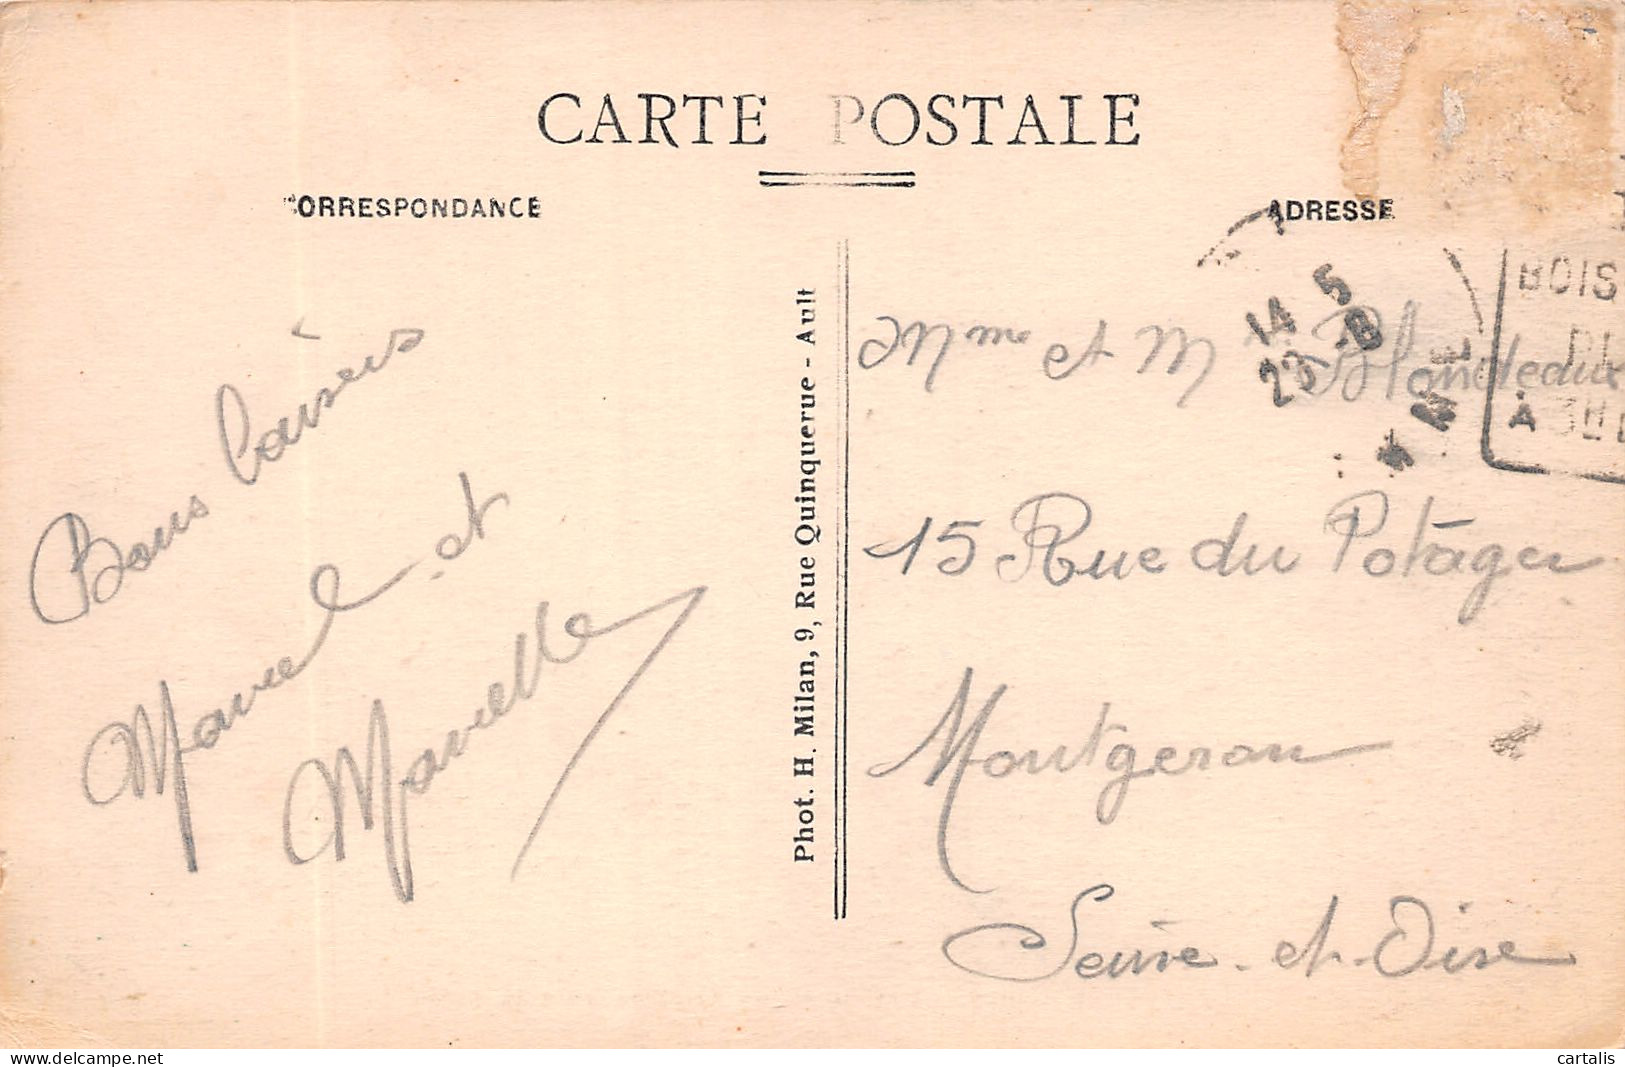 CARTE POSTALE
CORRESPONDANCE
ADRESSE
Bons baisers
Marcel et
Marcelle
Phot. H. Milan, 9, Rue Quinquerue - Ault
Mme et M
15 Rue du Potager
Montgeron
Seine-et-Oise
14 5
23 -8
BOIS
A
delcampe.net
cartalis